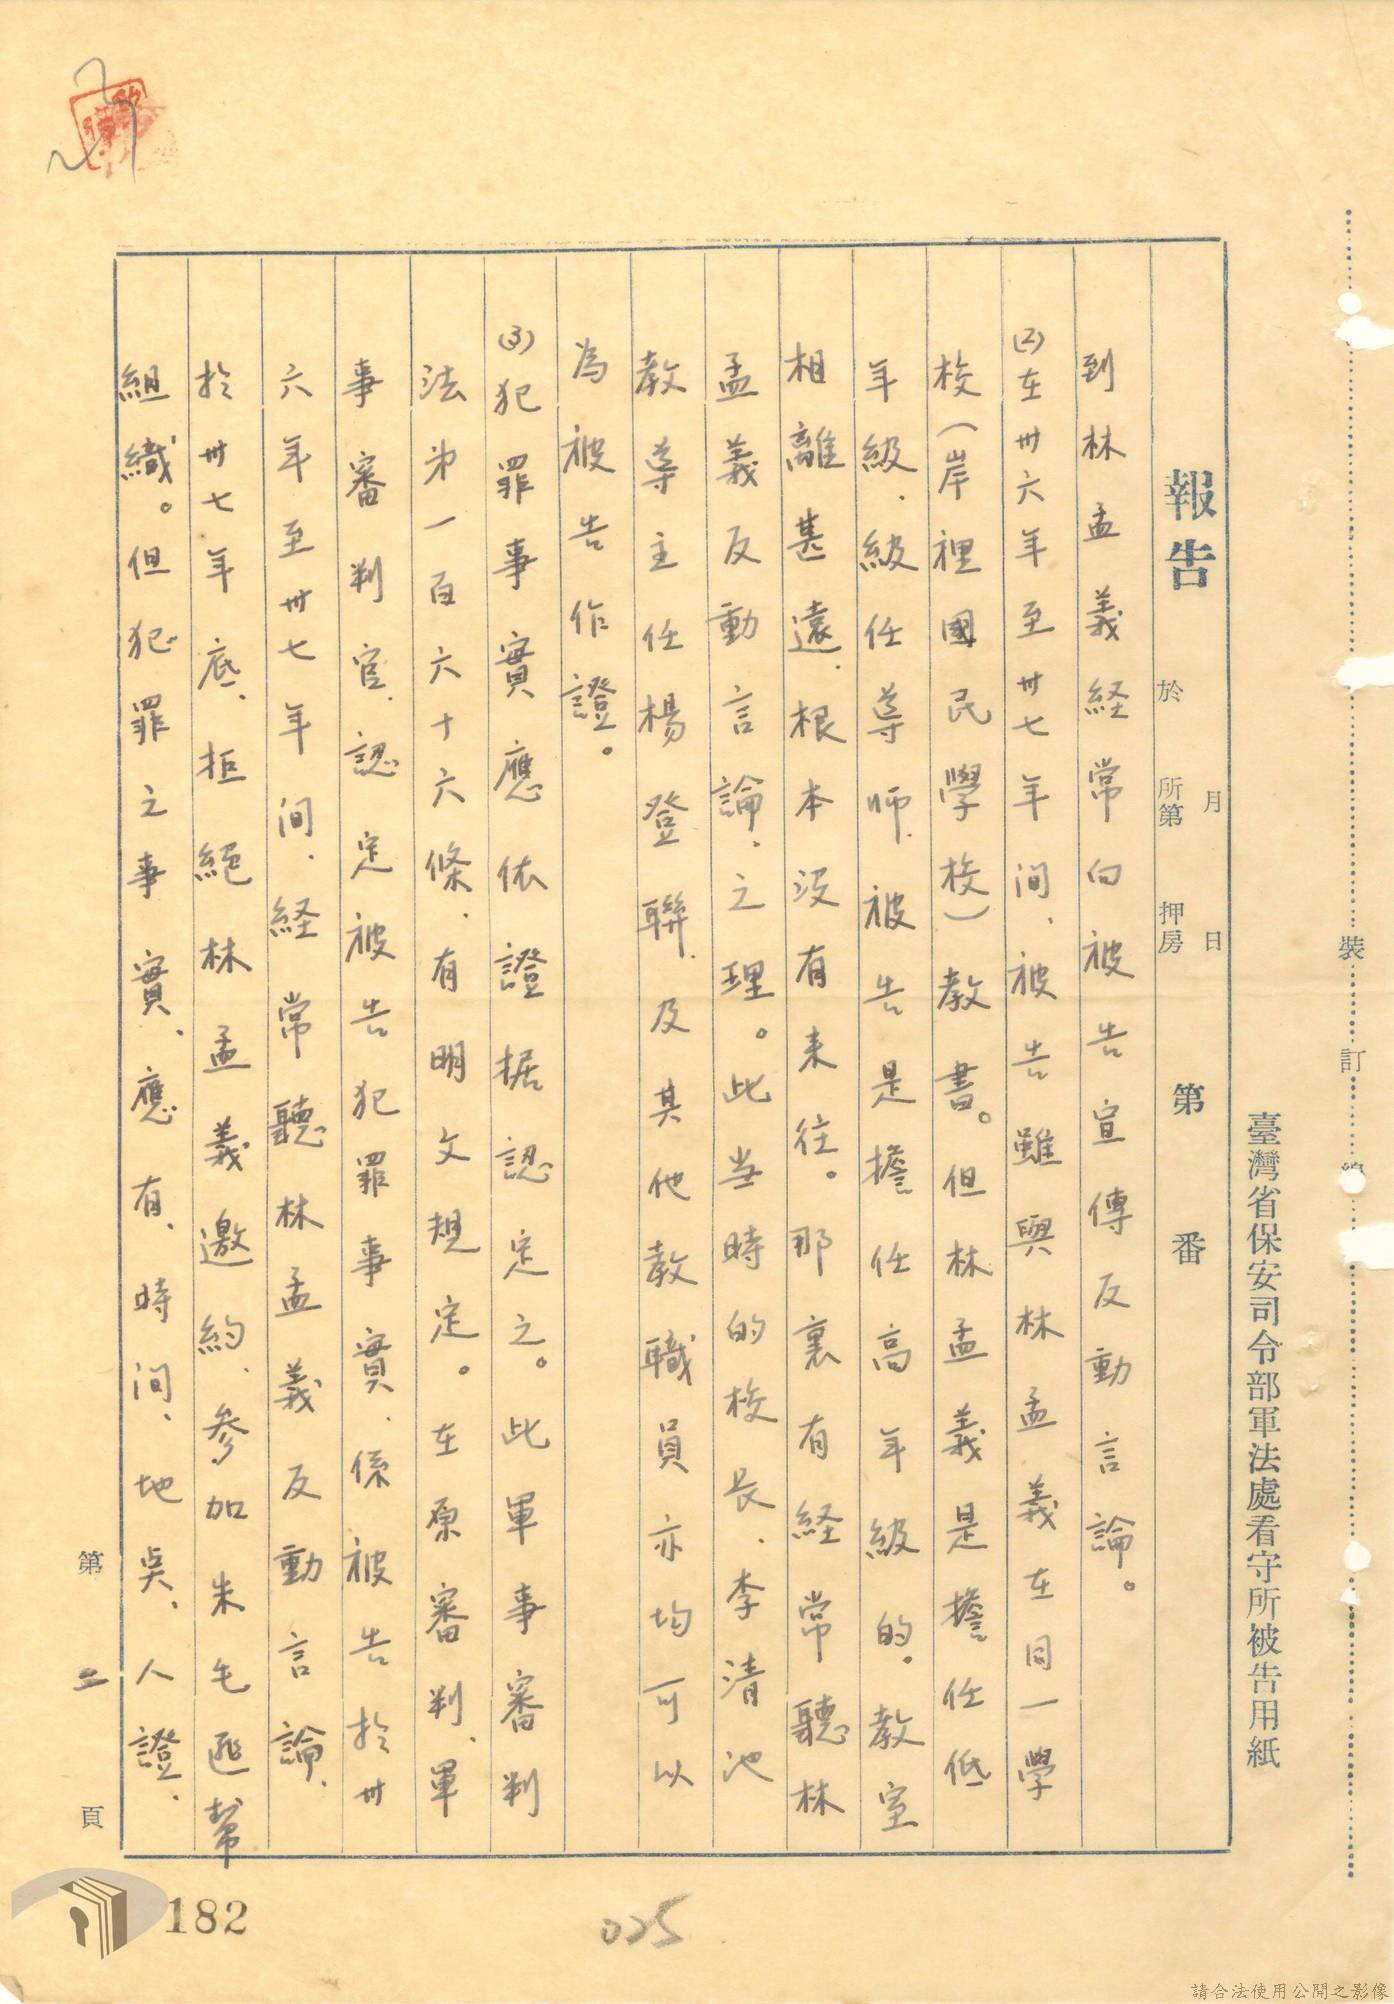 裝訂線
臺灣省保安司令部軍法處看守所被告用紙
報告
月 日
於 所第 押房
第 番
到林孟義経常向被告宣傳反動言論。
(2)在卅六年至卅七年间、被告雖與林孟義在同一學
校(岸裡國民學校)教書。但林孟義是擔任低
年級、級任導师、被告是擔任高年級的。教室
相離甚遠、根本没有来往。那裏有経常聽林
孟義反動言論、之理。此当時的校長、李清池
教導主任楊登聯、及其他教職員亦均可以
為被告作證。
(3)犯罪事實應依證据認定之。此軍事審判
法第一百六十六條、有明文規定。在原審判、軍
事審判官、認定被告犯罪事實、係被告於卅
六年至卅七年间、経常聽林孟義反動言論、
於卅七年底、拒絕林孟義邀約、參加朱毛匪幫
組織。但犯罪之事實、應有、時间、地奌、人證、
第 二 頁
182
025
請合法使用公開之影像